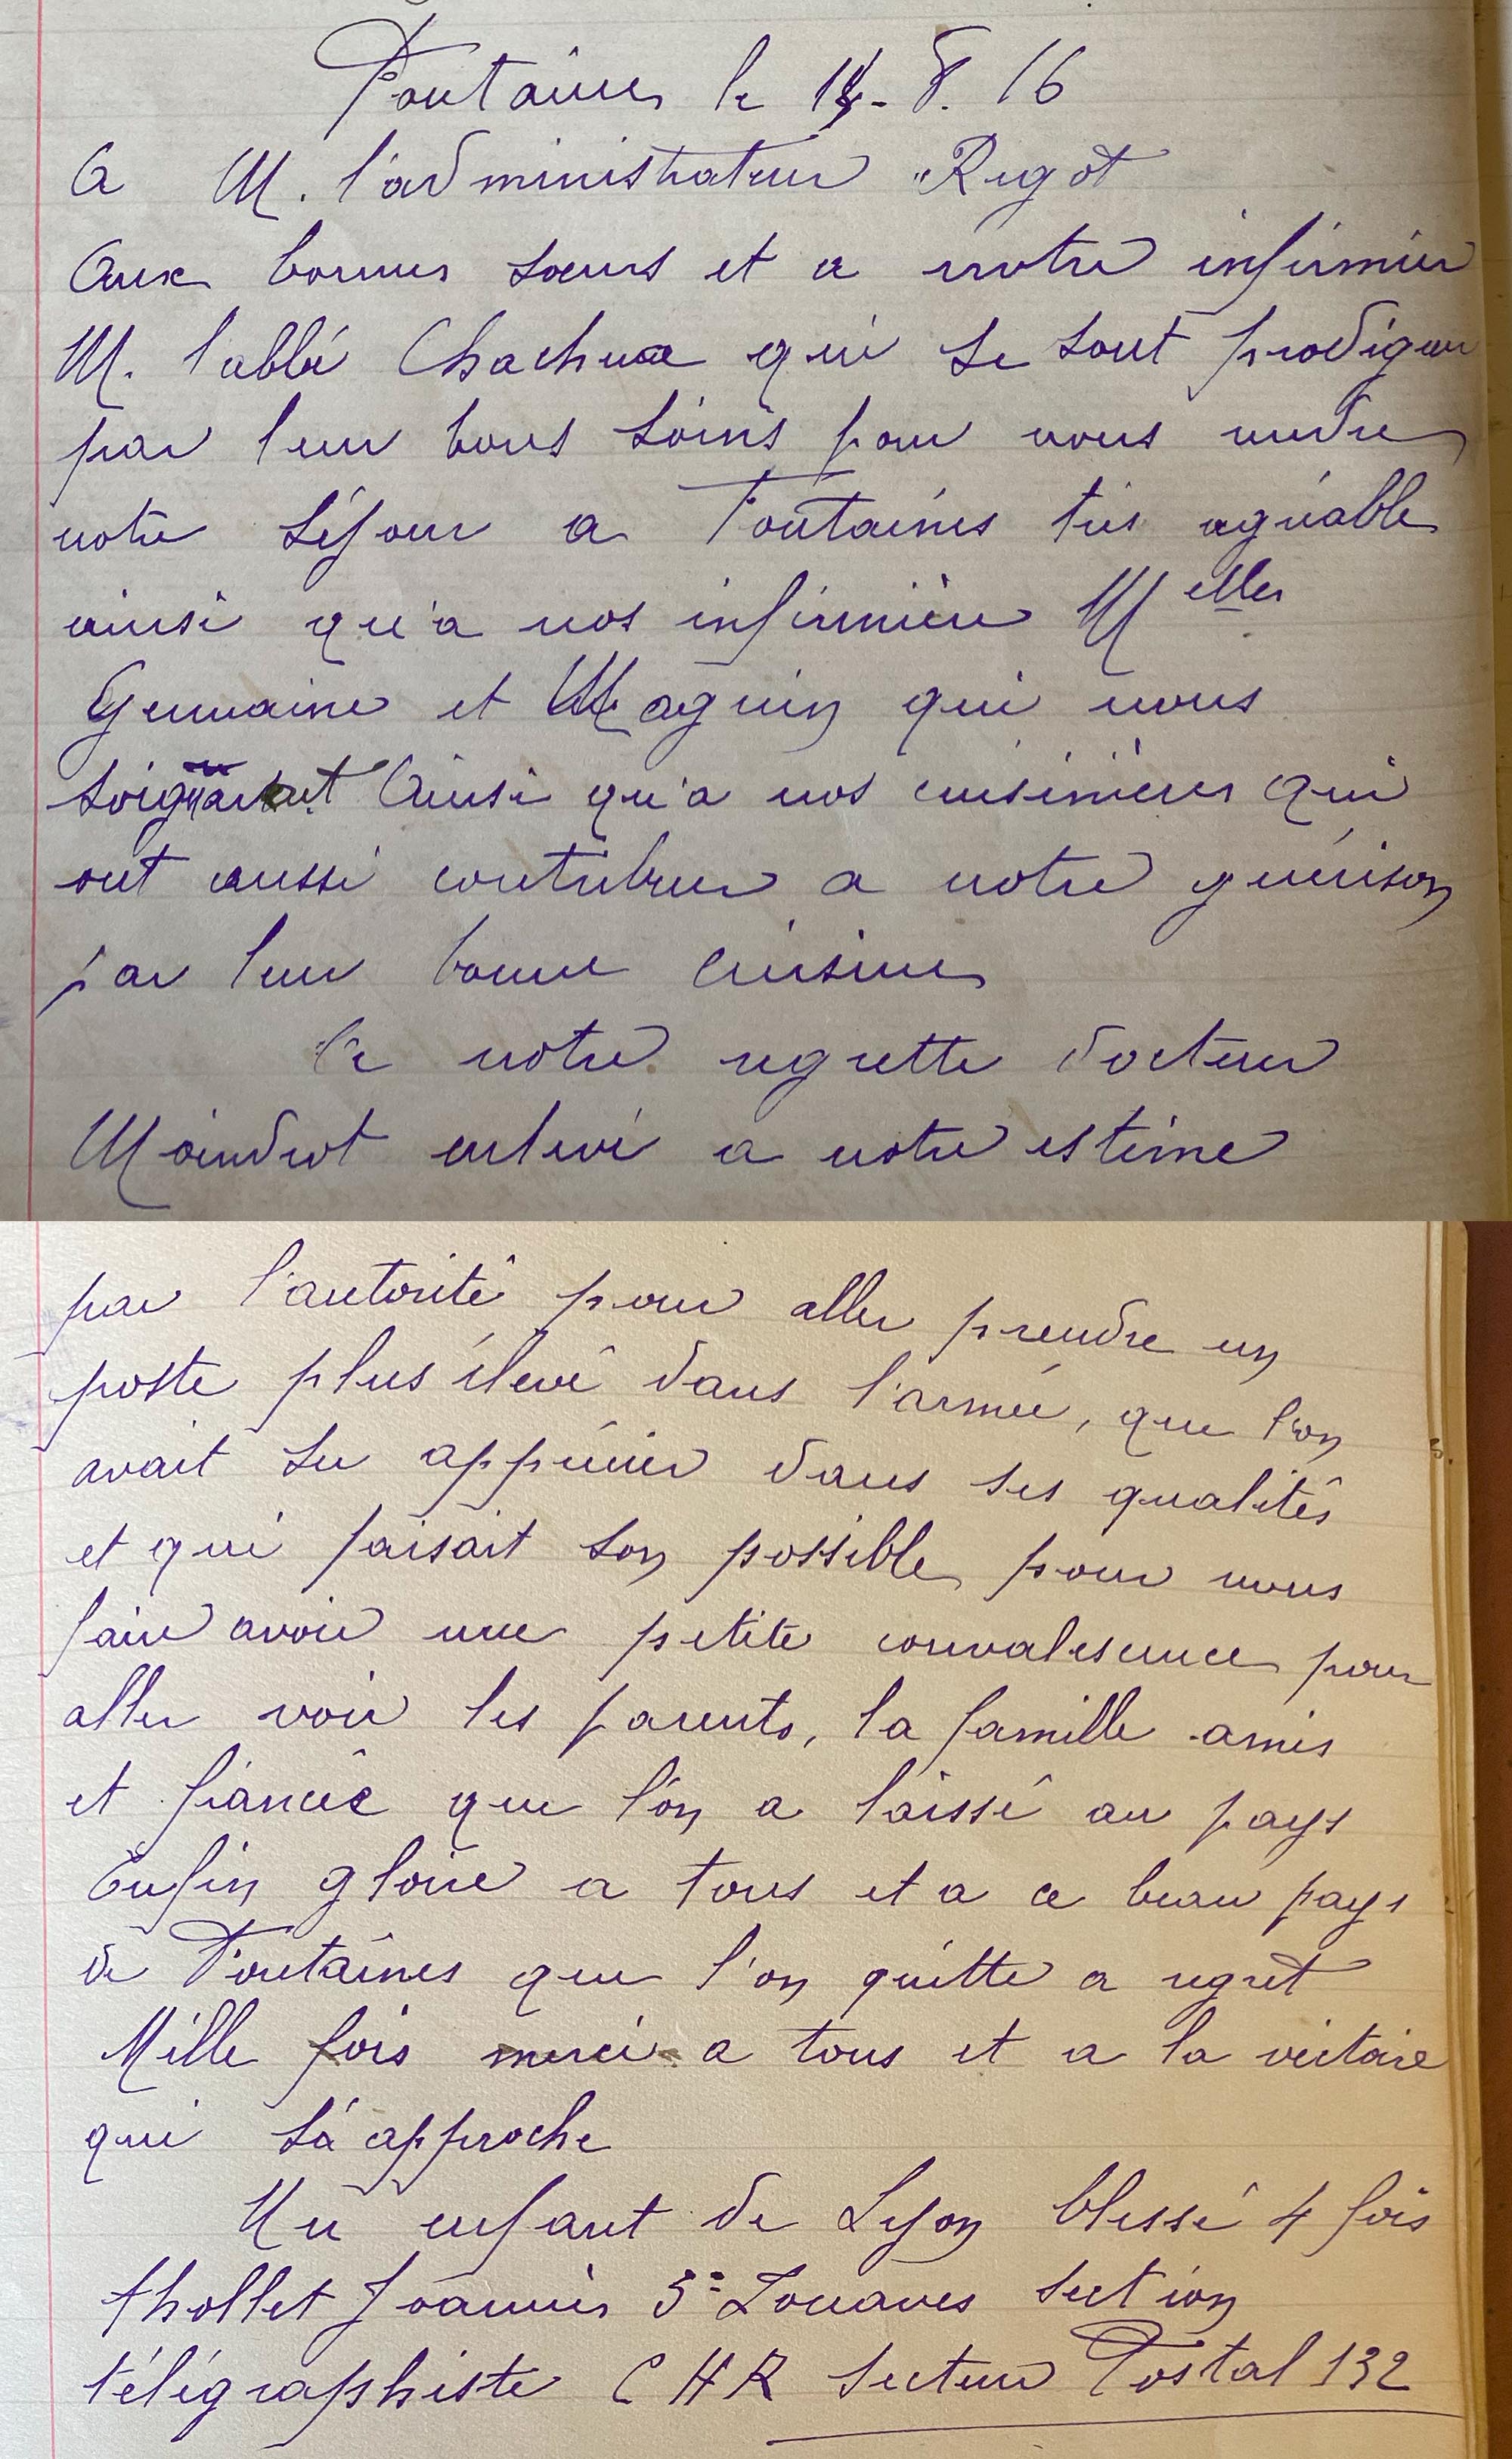 Fontaines le 14-8. 16
A M. l'administrateur Rigot
Aux bonnes sœurs et a notre infirmier
M. l'abbé Chachua qui se sont prodiguer
par leur bons soins pour nous rendre
notre séjour a Fontaines très agréable
ainsi qu'a nos infirmière Melles
Germaine et Maguin qui nous
soignaient Ainsi qu'a nos cuisinières qui
ont aussi contribuer a notre guérison
par leur bonne cuisine
A notre regrette docteur
Moindrot enlevé a notre estime
par l'autorité pour aller prendre un
poste plus élevé dans l'armée, que l'on
avait su apprécier dans ses qualités
et qui faisait son possible pour nous
faire avoir une petite convalescence pour
aller voir les parents, la famille amis
et fiancée que l'on a laissé au pays
Enfin gloire a tous et a ce beau pays
de Fontaines que l'on quitte a regret
Mille fois merci a tous et a la victoire
qui s'approche
Un enfant de Lyon blessé 4 fois
thollet Joannès 3e Zouaves section
télégraphiste C H R secteur Postal 132